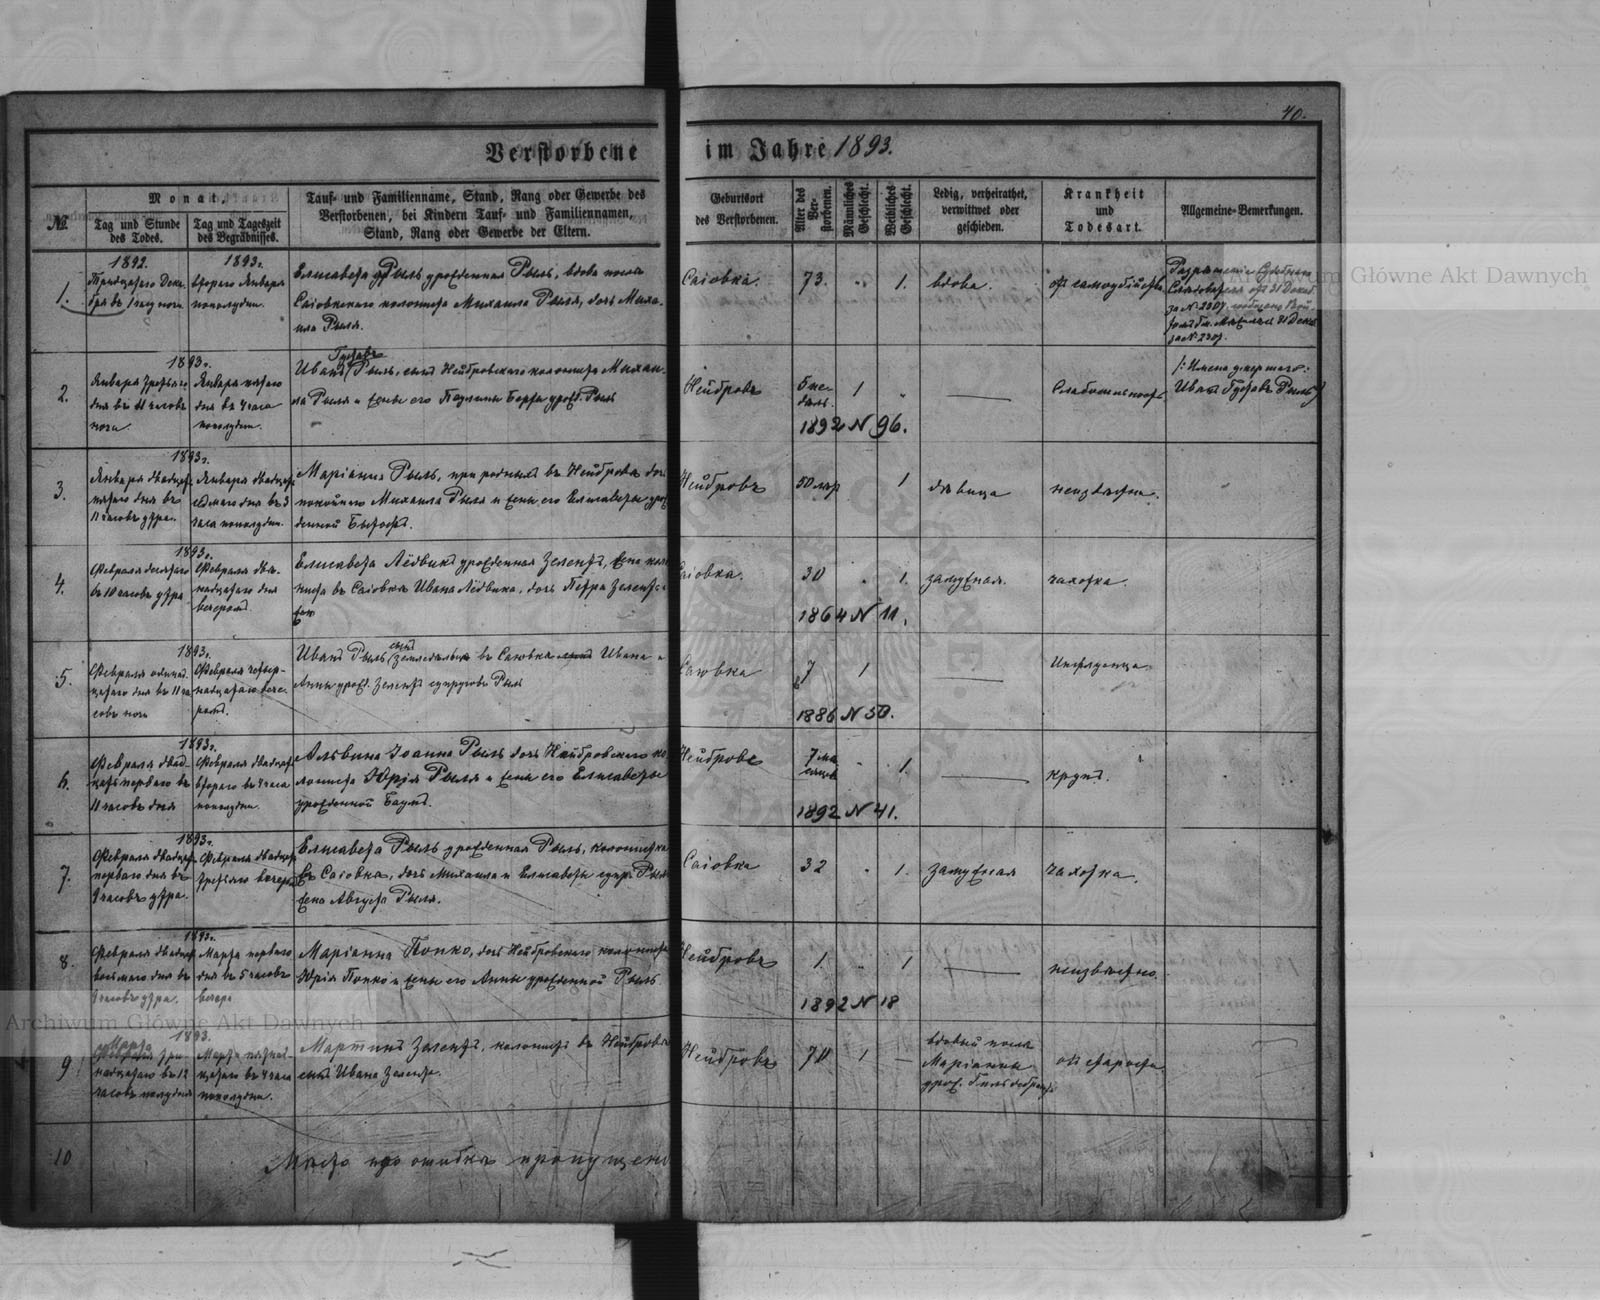 40.
Verstorbene im Jahre 1893.
№.
Monat,
Tag und Stunde des Todes.
Tag und Tageszeit des Begräbnisses.
Tauf- und Familienname, Stand, Rang oder Gewerbe des
Verstorbenen, bei Kindern Tauf- und Familiennamen,
Stand, Rang oder Gewerbe der Eltern.
Geburtsort
des Verstorbenen.
Alter des Ver-
storbenen.
Männliches
Geschlecht.
Weibliches
Geschlecht.
Ledig, verheirathet,
verwittwet oder
geschieden.
Krankheit
und
Todesart.
Allgemeine-Bemerkungen.
1.
1892.
Тридцатого Дека-
бря въ 1 часу ночи
1893г.
второго Января
пополудни.
Елисавета Рыль урожденная Рыль, вдова посла
Саіовкского колониста Михаила Рыля, дочь Миха-
ила Рыля.
Саіовка.
73.
1.
вдова.
от самоубійства
Разрешеніе Судебнаго
Следователя от 31 Декаб.
за № 2307.
2.
1893г.
Января третьяго
дня въ 11 часовъ
ночи.
Января пятого
дня въ 4 часа
пополудни.
Густавъ
Иванъ Рыль, сынъ Нейбровского колониста Михаи-
ла Рыля и жены его Паулины Берты урожд. Рыль
Нейбровъ
5 не-
дѣль.
1
1892 № 96.
Слабосильность
/: Имена умершаго:
Иванъ Густавъ Рыль/
3.
1893г.
Января двадцать
пятаго дня въ
11 часовъ утра.
Января двадцать
седьмаго дня въ 3
часа пополудни.
Маріанна Рыль, при родныхъ въ Нейбровѣ, дочь
покойнаго Михаила Рыля и жены его Елисаветы урож-
денной
Нейбровъ
50 лѣтъ
1
дѣвица
неизвѣстна.
4.
1893г.
Февраля десятаго
въ 10 часовъ утра
Февраля двѣ-
надцатаго дня
вечеромъ.
Елисавета Лёдвикъ урожденная Зелентъ, жена коло-
ниста въ Саіовкѣ Ивана Лёдвика, дочь Петра Зелента
Саіовка.
30
1.
1864 № 11.
замужная.
чахотка.
5.
1893г.
Февраля одинад-
цатаго дня въ 11 ча-
совъ ночи
Февраля четыр-
надцатаго вече-
ромъ.
Иванъ Рыль сынъ земледѣльца въ Саіовкѣ Ивана и
Анны урожд. Зелентъ супруговъ Рыль
Саіовка
7
1
1886 № 50.
Инфлуенца.
6.
1893г.
Февраля двад-
цать перваго въ
11 часовъ дня
Февраля двадцать
второго въ 4 часа
пополудни.
Альвина Іоанна Рыль дочь Нейбровского ко-
лониста Юрія Рыля и жены его Елисаветы
урожденной Баумъ.
Нейбровъ
7 мѣ-
сяцевъ
1.
1892 № 41.
крупъ.
7.
1893г.
Февраля двадцать
перваго дня въ
9 часовъ утра.
Февраля двадцать
третьяго вечеромъ
Елисавета Рыль урожденная Рыль, колонистка
въ Саіовкѣ, дочь Михаила и Елисаветы супр. Рыль
жена Августа Рыля.
Саіовка
32
1.
замужная
чахотка.
8.
1893г.
Февраля двадцать
восьмаго дня въ
9 часовъ утра.
Марта перваго
дня въ 5 часовъ
вечера
Маріанна Попко, дочь Нейбровского колониста
Юрія Попко и жены его Анны урожденной Рыль.
Нейбровъ
1.
1
1892 № 18
неизвѣстно.
9
1893.
Марта три-
надцатаго въ 12
часовъ полудня
Марта пятнад-
цатаго въ 4 часа
пополудни.
Мартинъ Зелентъ, колонистъ въ Нейбровѣ
сынъ Ивана Зелента.
Нейбровъ
70
1
вдовый посла
Маріанны
урож.
от старости.
10
Место по ошибке пропущено
Archiwum Główne Akt Dawnych
Archiwum Główne Akt Dawnych